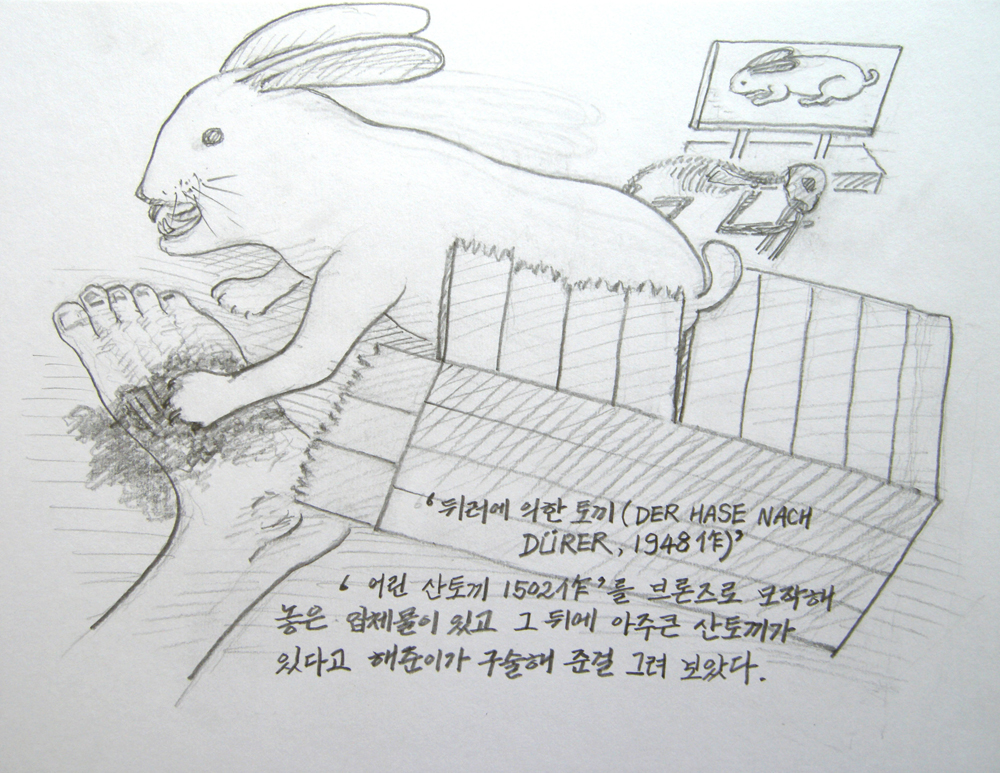 ‘뒤러에 의한 토끼(DER HASE NACH
DÜRER, 1948作)’
‘어린 산토끼 1502作’를 브론즈로 모작해
놓은 입체물이 있고 그 뒤에 아주큰 산토끼가
있다고 해준이가 구술해 준걸 그려 보았다.